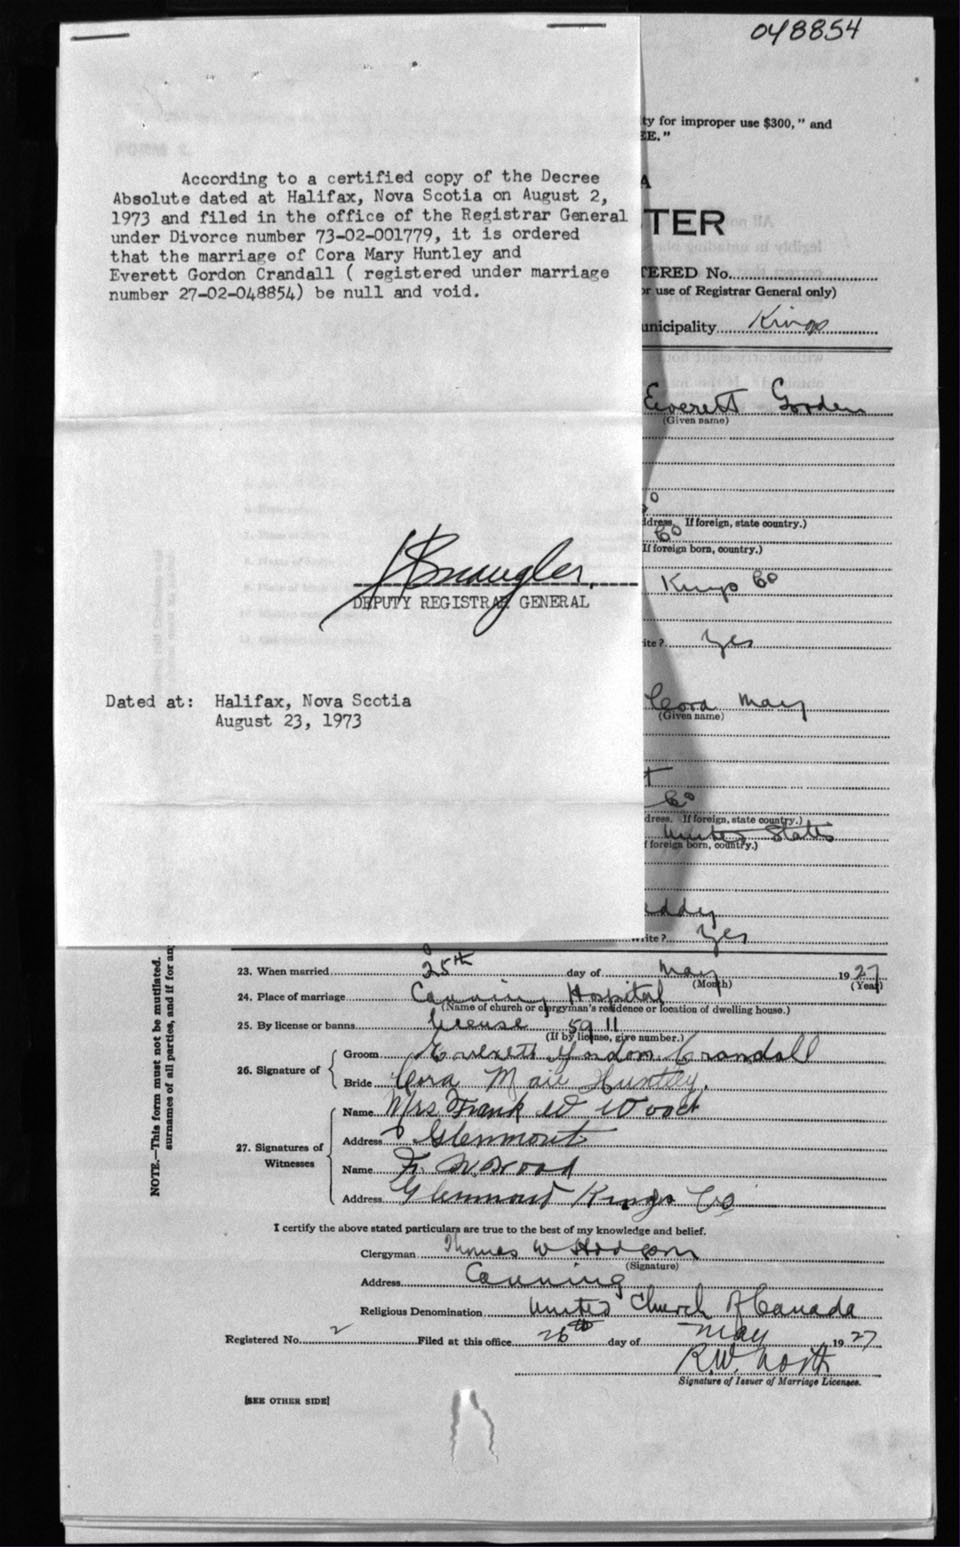 048854
According to a certified copy of the Decree
Absolute dated at Halifax, Nova Scotia on August 2,
1973 and filed in the office of the Registrar General
under Divorce number 73-02-001779, it is ordered
that the marriage of Cora Mary Huntley and
Everett Gordon Crandall ( registered under marriage
number 27-02-048854) be null and void.
DEPUTY REGISTRAR GENERAL
Dated at: Halifax, Nova Scotia
August 23, 1973
ty for improper use $300," and
EE."
A
TER
TERED No.
or use of Registrar General only)
unicipality Kings
Everett Gorden
(Given name)
ddress. If foreign, state country.)
Co
If foreign born, country.)
Kings Co
ite? Yes
Cora May
(Given name)
Co
dress. If foreign, state country.)
United States
f foreign born, country.)
rite? Yes
NOTE.—This form must not be mutilated.
surnames of all parties, and if for an
23. When married 25th day of May 1927
(Month) (Year)
24. Place of marriage Canning Hospital
(Name of church or clergyman's residence or location of dwelling house.)
25. By license or banns license 5911
(If by license, give number.)
26. Signature of
Groom Everett Gordon Crandall
Bride Cora Maie Huntley.
27. Signatures of Witnesses
Name Mrs Frank W Wood
Address Glenmont
Name F. W. Wood
Address Glenmont Kings Co
I certify the above stated particulars are true to the best of my knowledge and belief.
Clergyman Thomas W Hodgson
(Signature)
Address Canning
Religious Denomination United Church of Canada
Registered No. 2 Filed at this office 26th day of May 1927
R.W. North
Signature of Issuer of Marriage Licenses.
[SEE OTHER SIDE]